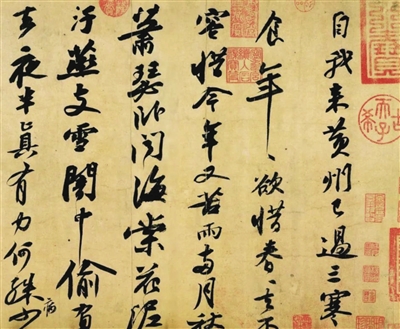 自我來黃州已過三寒
食年〻欲惜春〻去不
容惜今年又苦雨兩月秋
蕭瑟臥聞海棠花泥
汙燕支雪闇中偷負
去夜半真有力何殊病少